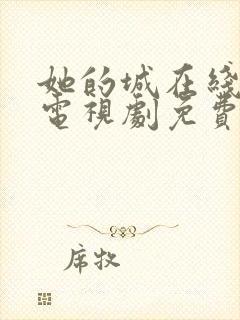 她的城在綫
電視劇免費
席牧